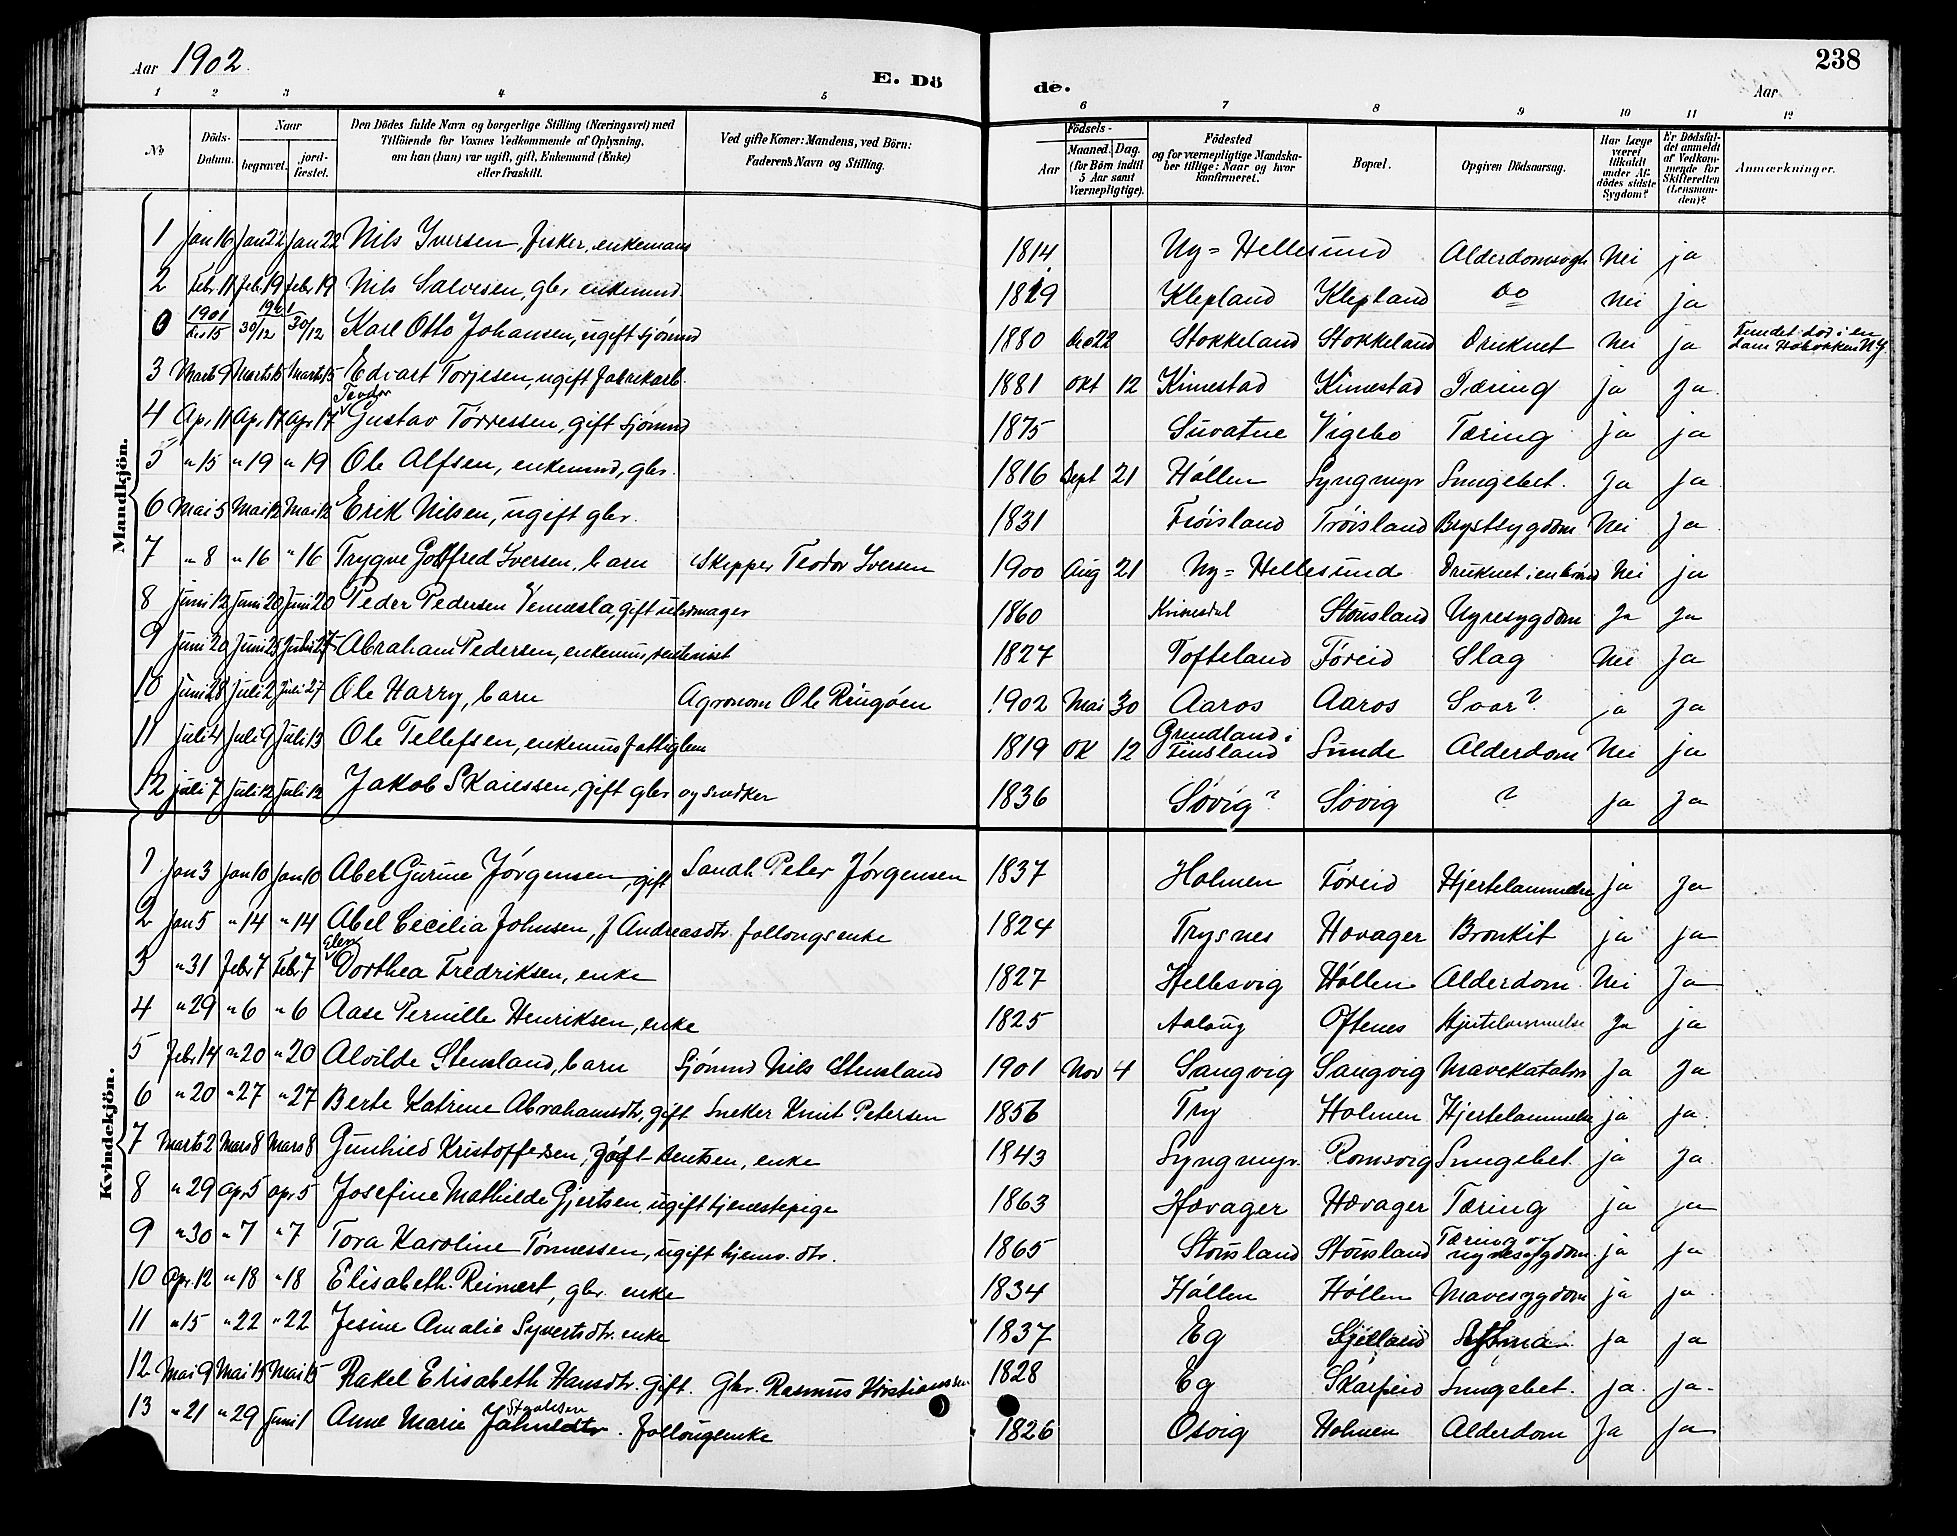 Aar 1902.
E. Dö de.
238
Aar
1 2 3 4 5 6 7 8 9 10 11 12
No. Döds-Datum. Naar begravet. jordfæstet. Den Dödes fulde Navn og borgerlige Stilling (Næringsvei) med Tilföiende for Voxnes Vedkommende af Oplysning, om han (hun) var ugift, gift, Enkemand (Enke) eller fraskilt. Ved gifte Koner: Mandens, ved Börn: Faderens Navn og Stilling. Födsels- Aar Maaned. Dag. (for Börn indtil 5 Aar samt Værnepligtige). Födested og for værnepligtige Mandskaber tillige: Naar og hvor konfirmeret. Bopæl. Opgiven Dödsaarsag. Har Læge været tilkaldt under Afdödes sidste Sygdom? Er Dödsfaldet anmeldt af Vedkommende for Skifteretten (Lensmanden)? Anmærkninger.
Mandkjön.
1 Jan 16 Jan 22 Jan 22 Nils Iversen, fisker, enkemand 1814 Ny=Hellesund Nei ja
2 Febr. 11 Feb 19 Febr 19 Nils Salvesen, gbr enkemnd. 1819 Klepland Klepland do Nei ja
0 1901 Des 15 1901 30/12 30/12 Karl Otto Johansen, ugift sjömnd 1880 Des 22 Stokkeland Stokkeland Druknet Nei ja Fundet död i en dam Hobokken N.Y.
3 Marts 9 Marts 15 Marts 15 Edvart Torjesen, ugift fabrikarb. 1881 Okt 12 Kimestad Kimestad Tæring ja Ja.
4 Ap. 11 Ap. 17 Apr 17 Teodor Gustav Törressen, gift sjömnd 1875 Suvatne Vigebo Tæring ja ja
5 " 15 " 19 " 19 Ole Alfsen, enkemnd, gbr. 1816 Sept 21 Höllen Lyngmyr Lungebet. Ja Ja.
6 Mai 5 Mai 12 Mai 12 Erik Nilsen, ugift gbr. 1831 Tröisland Tröisland Brystsygdom Nei Ja
7 " 8 " 16 " 16 Trygve Godfred Iversen, barn Skipper Teodor Iversen 1900 Aug 21 Ny=Hellesund Druknet i en brönd Nei ja
8 Juni 12 Juni 20 Juni 20 Peder Pedersen Venæsla, gift urmager 1860 Stousland Nyresygdom Ja Ja
9 Juni 20 Juni 25 Abraham Pedersen, enkemn, 1827 Tofteland Föreid Slag Nei Ja
10 Juni 28 Juli 2 Juli 27 Ole Harry, barn Agronom Ole Ringöen 1902 Mai 30 Aaros Aaros Svar? ja Ja
11 Juli 4 Juli 9 Juli 13 Ole Tellefsen, enkemn fattiglem 1819 Ok 12 Grundland i Finsland Sunde Alderdom Nei ja
12 Juli 7 Juli 12 Juli 12 Jakob Skaiessen, gift gbr og snedker 1836 Sövig? Sövig ? ja Ja
Kvindekjön.
1 Jan 3 Jan 10 Jan 10 Abel Gurine Jörgensen, gift Sandh. Peter Jörgensen 1837 Holmen Föreid Hjertelammelse ja Ja
2 Jan 5 " 14 " 14 Abel Cecilia Johnsen, f Andreasdtr. follougsenke 1824 Trysnes Hovager Bronkit ja ja
3 " 31 Febr 7 Febr 7 Elen Dorthea Fredriksen, enke 1827 Hellesvig Höllen Alderdom Nei Ja
4 " 29 " 6 " 6 Aase Pernille Henriksen, enke 1825 Aalaug Oftenes Hjertelammelse Ja ja
5 Febr. 14 " 20 " 20 Alvilde Stensland, barn Sjömnd Nils Stensland 1901 Nov 4 Langvig Langvig Mavekatahr Ja Ja
6 " 20 " 27 " 27 Berte Katrine Abrahamsdtr, gift Sneker Knut Petersen 1856 Try Holmen Hjertelammelse ja ja.
7 Marts 2 Mars 8 Mars 8 Gunhild Kristoffersen, enke 1843 Lyngmyr. Romsvig Lungebet. ja Ja.
8 " 29 Apr. 5 apr 5 Josefine Mathilde Gjertsen, ugift tjenestepige 1863 Hovager Hovager Tæring ja ja
9 " 30 " 7 " 7 Tora Karoline Tönnessen, ugift hjemv. dtr. 1865 Stousland Stousland Tæring og nyresygdom. ja ja
10 Apr. 12 " 18 " 18 Elisabeth Reinert, gbr. enke 1834 Höllen Höllen Mavesygdom ja ja.
11 " 15 " 22 " 22 Jesine Amalie Syvertsdtr. enke 1837 Eg Skjelland ja ja
12 Mai 9 Mai 15 Mai 15 Rakel Elisabeth Hansdtr. gift. Gbr. Rasmus Kristianssen 1828 Eg Skarpeid Lungebet. ja. ja.
13 " 21 " 29 Juni 1 Anne Marie follougsenke 1826 Osvig Holmen Alderdom Ja ja